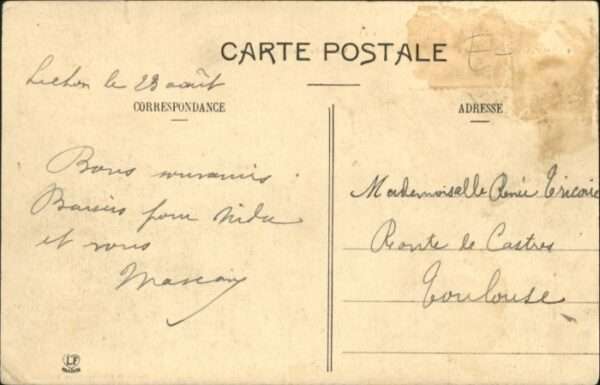 CARTE POSTALE
E-
Luchon le 23 août
CORRESPONDANCE
ADRESSE
Bons souvenirs
Baisers pour
et vous
Mademoiselle Renée Tricoire
Route de Castres
Toulouse
LF